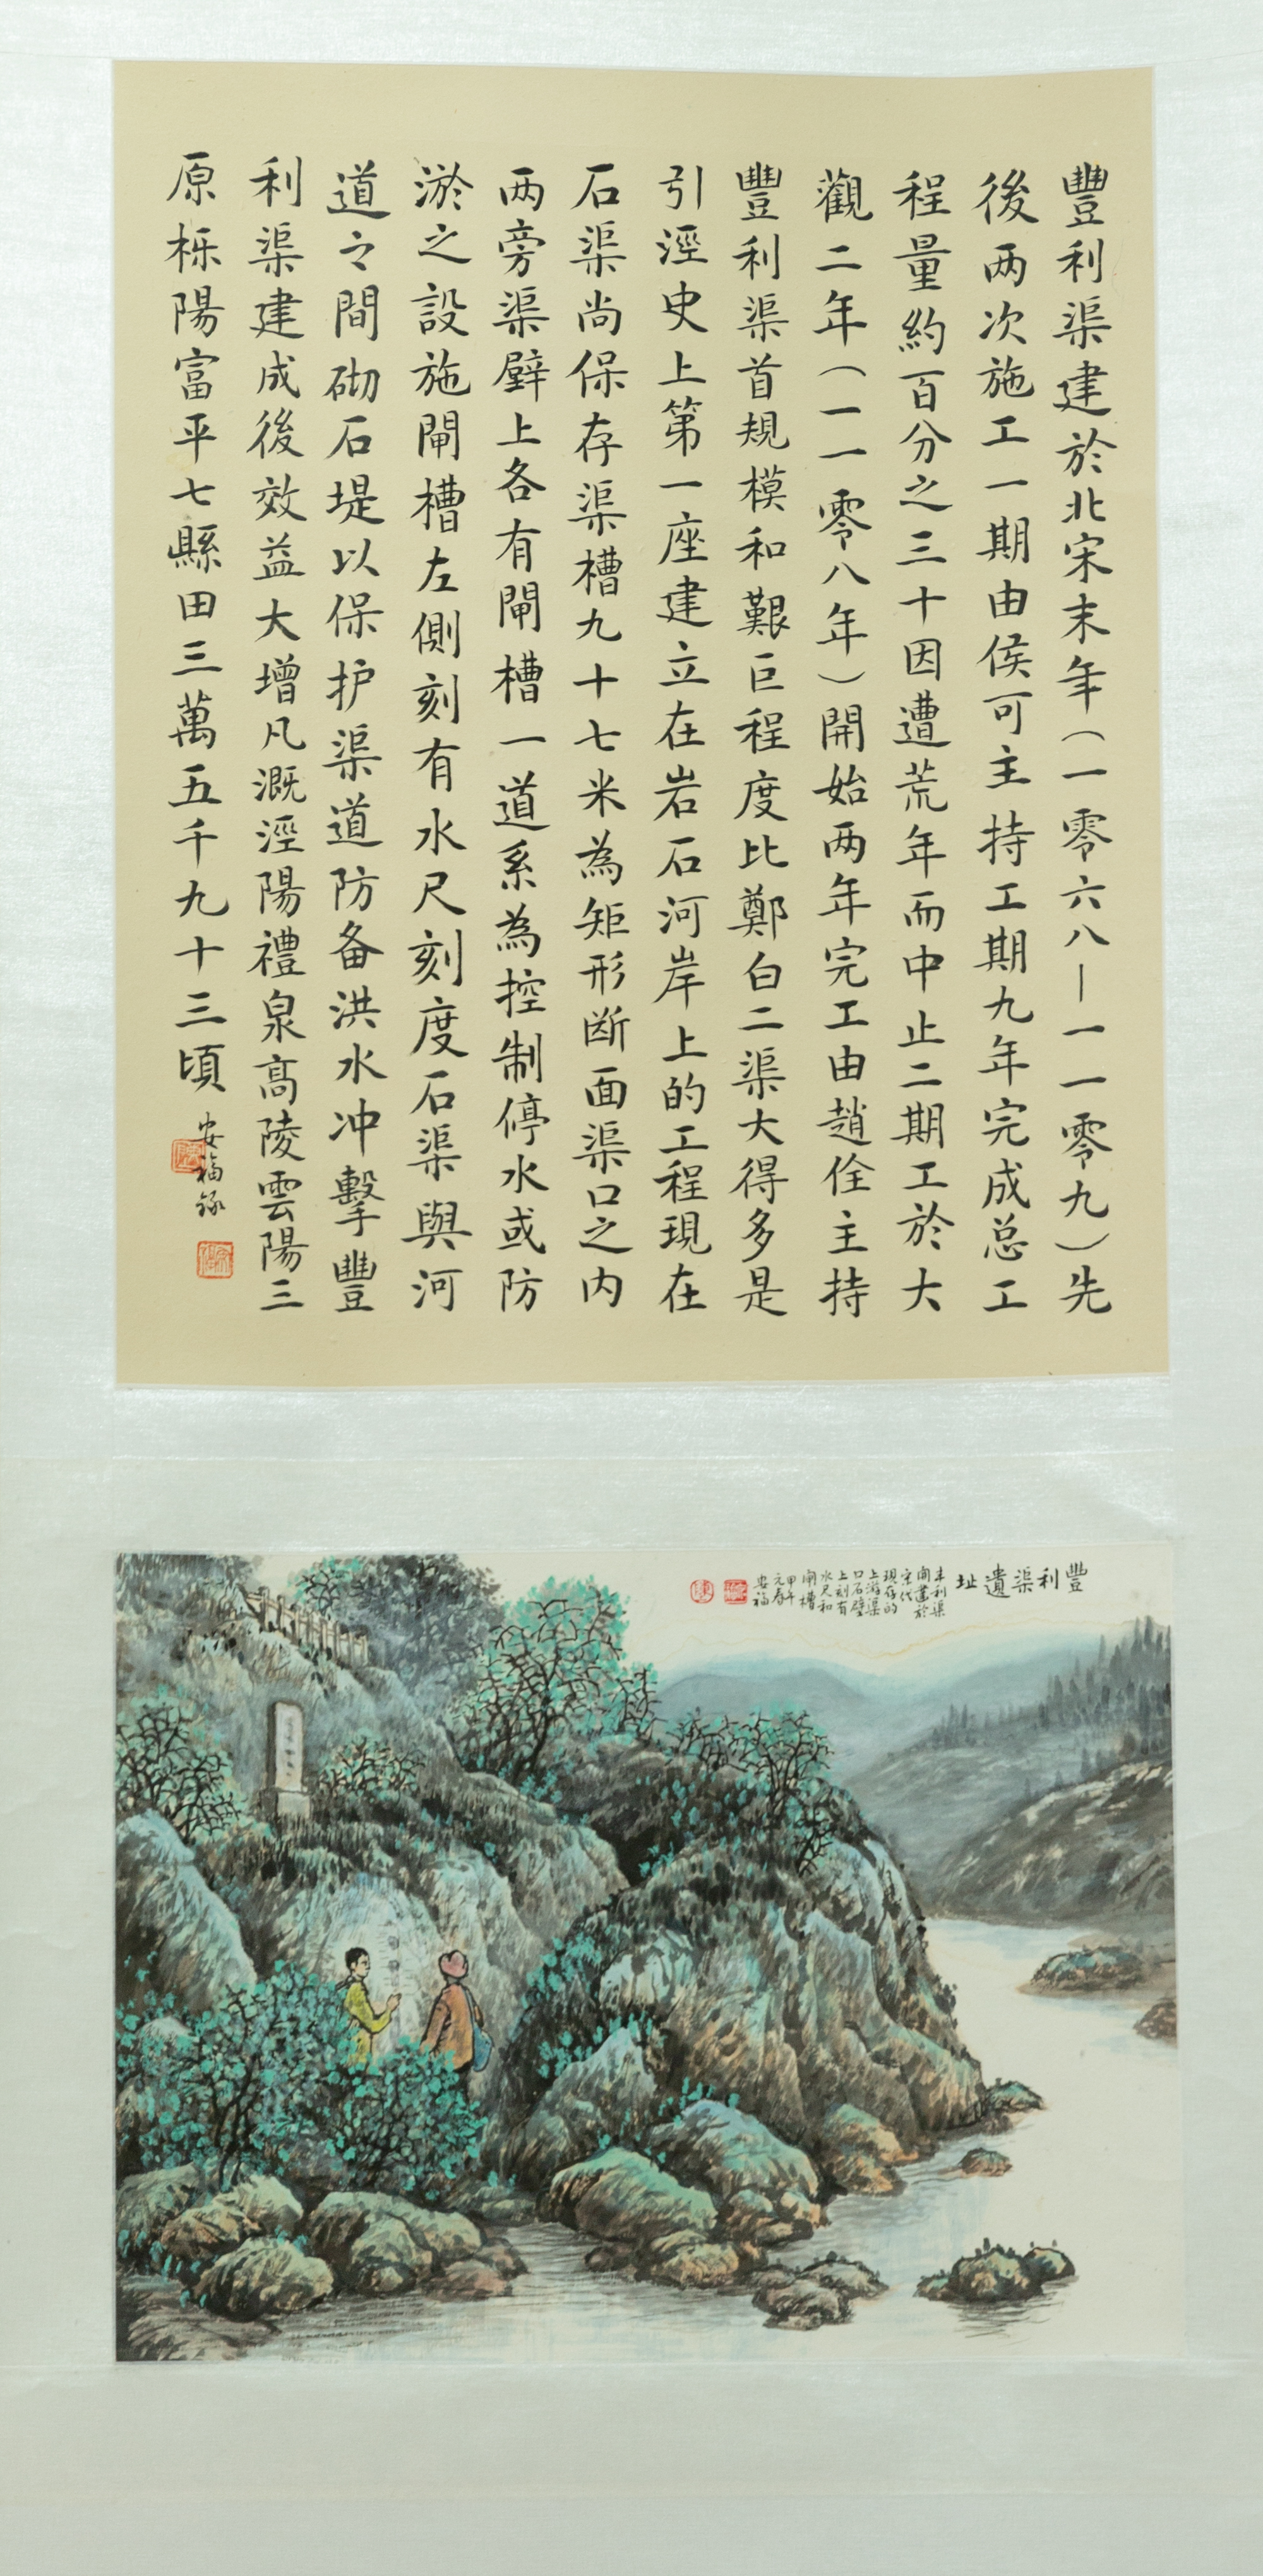 豐利渠建於北宋末年(一零六八—一一零九)先
後两次施工一期由侯可主持工期九年完成总工
程量約百分之三十因遭荒年而中止二期工於大
觀二年(一一零八年)開始两年完工由趙佺主持
豐利渠首規模和艱巨程度比鄭白二渠大得多是
引涇史上第一座建立在岩石河岸上的工程現在
石渠尚保存渠槽九十七米為矩形断面渠口之内
两旁渠壁上各有閘槽一道系為控制停水或防
淤之設施閘槽左側刻有水尺刻度石渠與河
道之間砌石堤以保护渠道防备洪水冲擊豐
利渠建成後效益大增凡溉涇陽禮泉高陵雲陽三
原栎陽富平七縣田三萬五千九十三頃
安福録
豐利渠遺址
丰利渠
開建於
宋代
現存的
上游渠
口石壁
上刻有
水尺和
閘槽
甲午
元春
安福